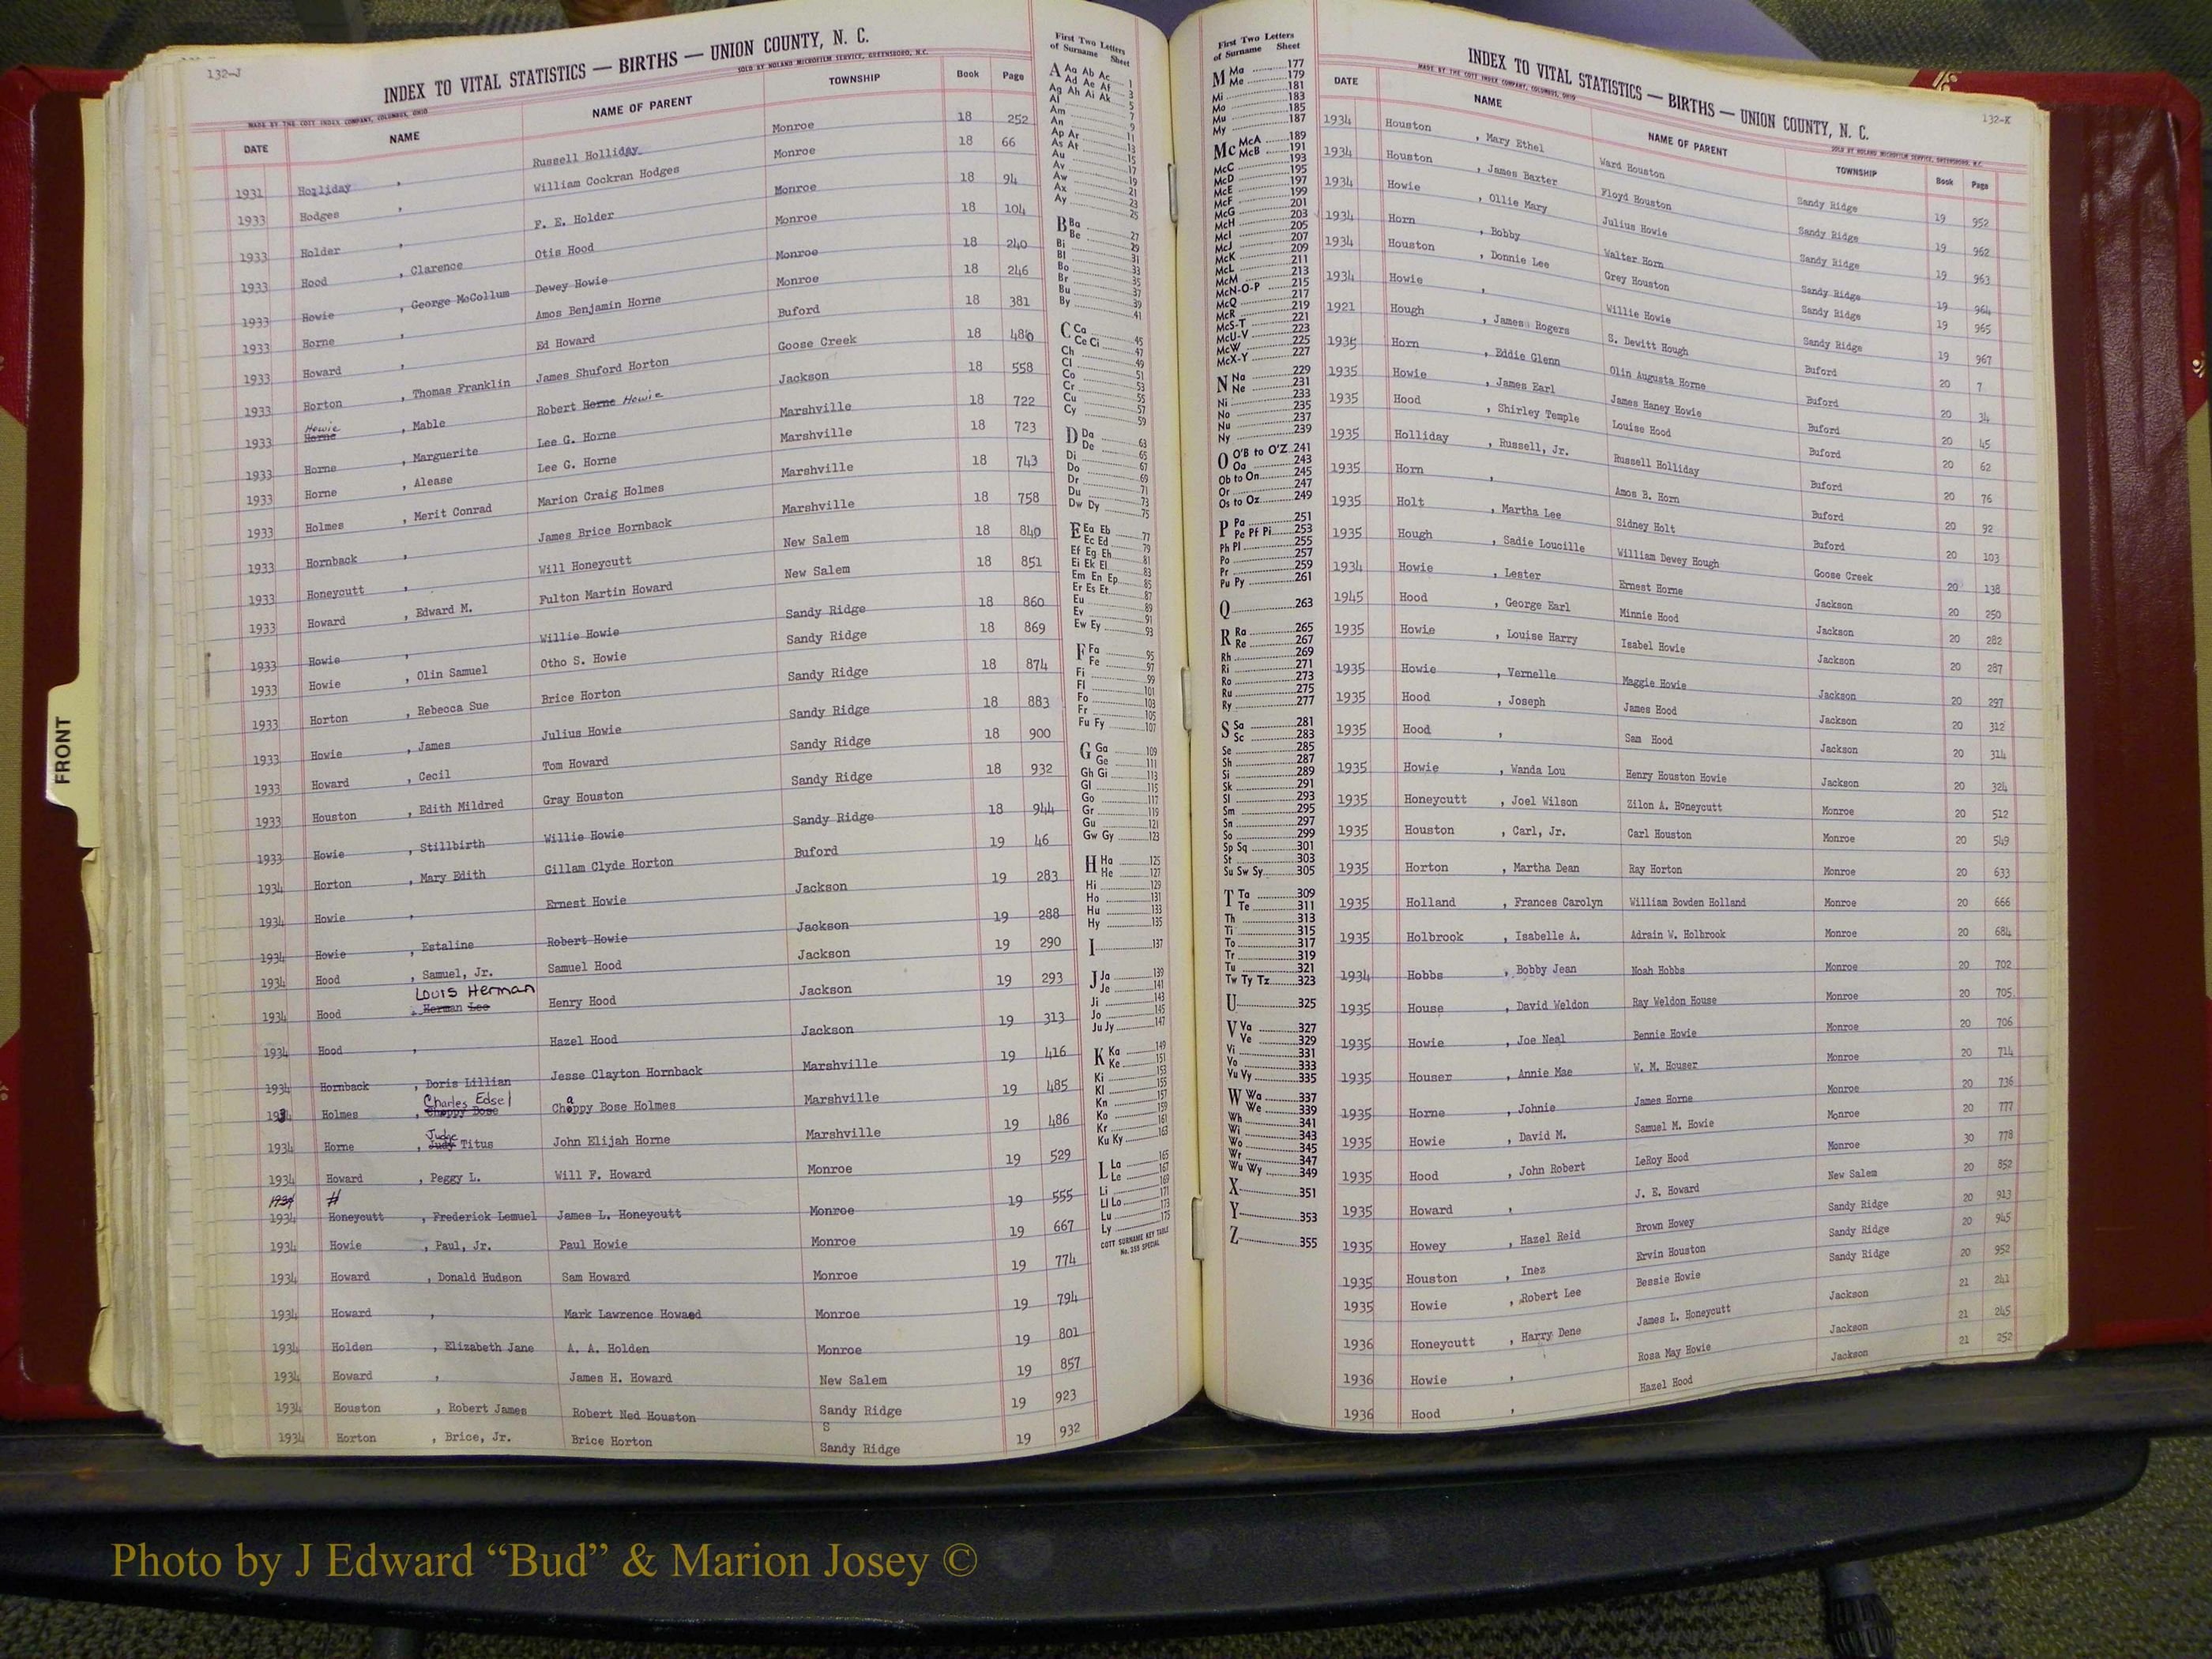 132-J
INDEX TO VITAL STATISTICS — BIRTHS — UNION COUNTY, N. C.
MADE BY THE COTT INDEX COMPANY, COLUMBUS, OHIO SOLD BY NOLAND MICROFILM SERVICE, GREENSBORO, N.C.
DATE NAME NAME OF PARENT TOWNSHIP Book Page
1931 Holliday , Russell Holliday Monroe 18 252
1933 Hodges , William Cockran Hodges Monroe 18 66
1933 Holder , F. E. Holder Monroe 18 94
1933 Hood , Clarence Otis Hood Monroe 18 104
1933 Howie , George McCollum Dewey Howie Monroe 18 240
1933 Horne , Amos Benjamin Horne Monroe 18 246
1933 Howard , Ed Howard Buford 18 381
1933 Horton , Thomas Franklin James Shuford Horton Goose Creek 18 480
1933 Horne Howie , Mable Robert Horne Howie Jackson 18 558
1933 Horne , Marguerite Lee G. Horne Marshville 18 722
1933 Horne , Alease Lee G. Horne Marshville 18 723
1933 Holmes , Merit Conrad Marion Craig Holmes Marshville 18 743
1933 Hornback , James Brice Hornback Marshville 18 758
1933 Honeycutt , Will Honeycutt New Salem 18 840
1933 Howard , Edward M. Fulton Martin Howard New Salem 18 851
1933 Howie , Willie Howie Sandy Ridge 18 860
1933 Howie , Olin Samuel Otho S. Howie Sandy Ridge 18 869
1933 Horton , Rebecca Sue Brice Horton Sandy Ridge 18 874
1933 Howie , James Julius Howie Sandy Ridge 18 883
1933 Howard , Cecil Tom Howard Sandy Ridge 18 900
1933 Houston , Edith Mildred Gray Houston Sandy Ridge 18 932
1933 Howie , Stillbirth Willie Howie Sandy Ridge 18 944
1934 Horton , Mary Edith Gillam Clyde Horton Buford 19 46
1934 Howie , Ernest Howie Jackson 19 283
1934 Howie , Estaline Robert Howie Jackson 19 288
1934 Hood , Samuel, Jr. Samuel Hood Jackson 19 290
1934 Hood , Herman Lee Louis Herman Henry Hood Jackson 19 293
1934 Hood , Hazel Hood Jackson 19 313
1934 Hornback , Doris Lillian Jesse Clayton Hornback Marshville 19 416
193 Holmes , Choppy Bose Charles Edsel Chappy Bose Holmes Marshville 19 485
1934 Horne , Judy Judge Titus John Elijah Horne Marshville 19 486
1934 Howard , Peggy L. Will F. Howard Monroe 19 529
1934 #
1934 Honeycutt , Frederick Lemuel James L. Honeycutt Monroe 19 555
1934 Howie , Paul, Jr. Paul Howie Monroe 19 667
1934 Howard , Donald Hudson Sam Howard Monroe 19 774
1934 Howard , Mark Lawrence Howaed Monroe 19 794
1934 Holden , Elizabeth Jane A. A. Holden Monroe 19 801
1934 Howard , James H. Howard New Salem 19 857
1934 Houston , Robert James Robert Ned Houston Sandy Ridge 19 923
S
1934 Horton , Brice, Jr. Brice Horton Sandy Ridge 19 932
First Two Letters
of Surname Sheet
A Aa Ab Ac 1
Ad Ae Af 3
Ag Ah Ai Ak 5
Al 7
Am 9
An 11
Ap Ar 13
As At 15
Au 17
Av 19
Aw 21
Ax 23
Ay 25
B Ba 27
Be 29
Bi 31
Bl 33
Bo 35
Br 37
Bu 39
By 41
C Ca 45
Ce Ci 47
Ch 49
Cl 51
Co 53
Cr 55
Cu 57
Cy 59
D Da 63
De 65
Di 67
Do 69
Dr 71
Du 73
Dw Dy 75
E Ea Eb 77
Ec Ed 79
Ef Eg Eh 81
Ei Ek El 83
Em En Ep 85
Er Es Et 87
Eu 89
Ev 91
Ew Ey 93
F Fa 95
Fe 97
Fi 99
Fl 101
Fo 103
Fr 105
Fu Fy 107
G Ga 109
Ge 111
Gh Gi 113
Gl 115
Go 117
Gr 119
Gu 121
Gw Gy 123
H Ha 125
He 127
Hi 129
Ho 131
Hu 133
Hy 135
I 137
J Ja 139
Je 141
Ji 143
Jo 145
Ju Jy 147
K Ka 149
Ke 151
Ki 153
Kl 155
Kn 157
Ko 159
Kr 161
Ku Ky 163
L La 165
Le 167
Li 169
Ll Lo 171
Lu 173
Ly 175
COTT SURNAME KEY TABLE
No. 355 SPECIAL
First Two Letters
of Surname Sheet
M Ma 177
Me 179
Mi 181
Mo 183
Mu 185
My 187
Mc McA 189
McB 191
McC 193
McD 195
McE 197
McF 199
McG 201
McH 203
McI 205
McJ 207
McK 209
McL 211
McM 213
McN-O-P 215
McQ 217
McR 219
McS-T 221
McU-V 223
McW 225
McX-Y 227
N Na 229
Ne 231
Ni 233
No 235
Nu 237
Ny 239
O O'B to O'Z 241
Oa 243
Ob to On 245
Or 247
Os to Oz 249
P Pa 251
Pe Pf Pi 253
Ph Pl 255
Po 257
Pr 259
Pu Py 261
Q 263
R Ra 265
Re 267
Rh 269
Ri 271
Ro 273
Ru 275
Ry 277
S Sa 281
Sc 283
Se 285
Sh 287
Si 289
Sk 291
Sl 293
Sm 295
Sn 297
So 299
Sp Sq 301
St 303
Su Sw Sy 305
T Ta 309
Te 311
Th 313
Ti 315
To 317
Tr 319
Tu 321
Tw Ty Tz 323
U 325
V Va 327
Ve 329
Vi 331
Vo 333
Vu Vy 335
W Wa 337
We 339
Wh 341
Wi 343
Wo 345
Wr 347
Wu Wy 349
X 351
Y 353
Z 355
132-K
INDEX TO VITAL STATISTICS — BIRTHS — UNION COUNTY, N. C.
MADE BY THE COTT INDEX COMPANY, COLUMBUS, OHIO SOLD BY NOLAND MICROFILM SERVICE, GREENSBORO, N.C.
DATE NAME NAME OF PARENT TOWNSHIP Book Page
1934 Houston , Mary Ethel Ward Houston Sandy Ridge 19 952
1934 Houston , James Baxter Floyd Houston Sandy Ridge 19 962
1934 Howie , Ollie Mary Julius Howie Sandy Ridge 19 963
1934 Horn , Bobby Walter Horn Sandy Ridge 19 964
1934 Houston , Donnie Lee Grey Houston Sandy Ridge 19 965
1934 Howie , Willie Howie Sandy Ridge 19 967
1921 Hough , James Rogers S. Dewitt Hough Buford 20 7
1935 Horn , Eddie Glenn Olin Augusta Horne Buford 20 34
1935 Howie , James Earl James Haney Howie Buford 20 45
1935 Hood , Shirley Temple Louise Hood Buford 20 62
1935 Holliday , Russell, Jr. Russell Holliday Buford 20 76
1935 Horn , Amos B. Horn Buford 20 92
1935 Holt , Martha Lee Sidney Holt Buford 20 103
1935 Hough , Sadie Loucille William Dewey Hough Goose Creek 20 138
1934 Howie , Lester Ernest Horne Jackson 20 250
1945 Hood , George Earl Minnie Hood Jackson 20 282
1935 Howie , Louise Harry Isabel Howie Jackson 20 287
1935 Howie , Vernelle Maggie Howie Jackson 20 297
1935 Hood , Joseph James Hood Jackson 20 312
1935 Hood , Sam Hood Jackson 20 314
1935 Howie , Wanda Lou Henry Houston Howie Jackson 20 324
1935 Honeycutt , Joel Wilson Zilon A. Honeycutt Monroe 20 512
1935 Houston , Carl, Jr. Carl Houston Monroe 20 549
1935 Horton , Martha Dean Ray Horton Monroe 20 633
1935 Holland , Frances Carolyn William Bowden Holland Monroe 20 666
1935 Holbrook , Isabelle A. Adrain W. Holbrook Monroe 20 684
1934 Hobbs , Bobby Jean Noah Hobbs Monroe 20 702
1935 House , David Weldon Ray Weldon House Monroe 20 705
1935 Howie , Joe Neal Bennie Howie Monroe 20 706
1935 Houser , Annie Mae W. M. Houser Monroe 20 714
1935 Horne , Johnie James Horne Monroe 20 736
1935 Howie , David M. Samuel M. Howie Monroe 20 777
1935 Hood , John Robert LeRoy Hood Monroe 30 778
1935 Howard , J. E. Howard New Salem 20 852
1935 Howey , Hazel Reid Brown Howey Sandy Ridge 20 913
1935 Houston , Inez Ervin Houston Sandy Ridge 20 945
1935 Howie , Robert Lee Bessie Howie Sandy Ridge 20 952
1936 Honeycutt , Harry Dene James L. Honeycutt Jackson 21 241
1936 Howie , Rosa May Howie Jackson 21 245
1936 Hood , Hazel Hood Jackson 21 252
FRONT
Photo by J Edward “Bud” & Marion Josey ©